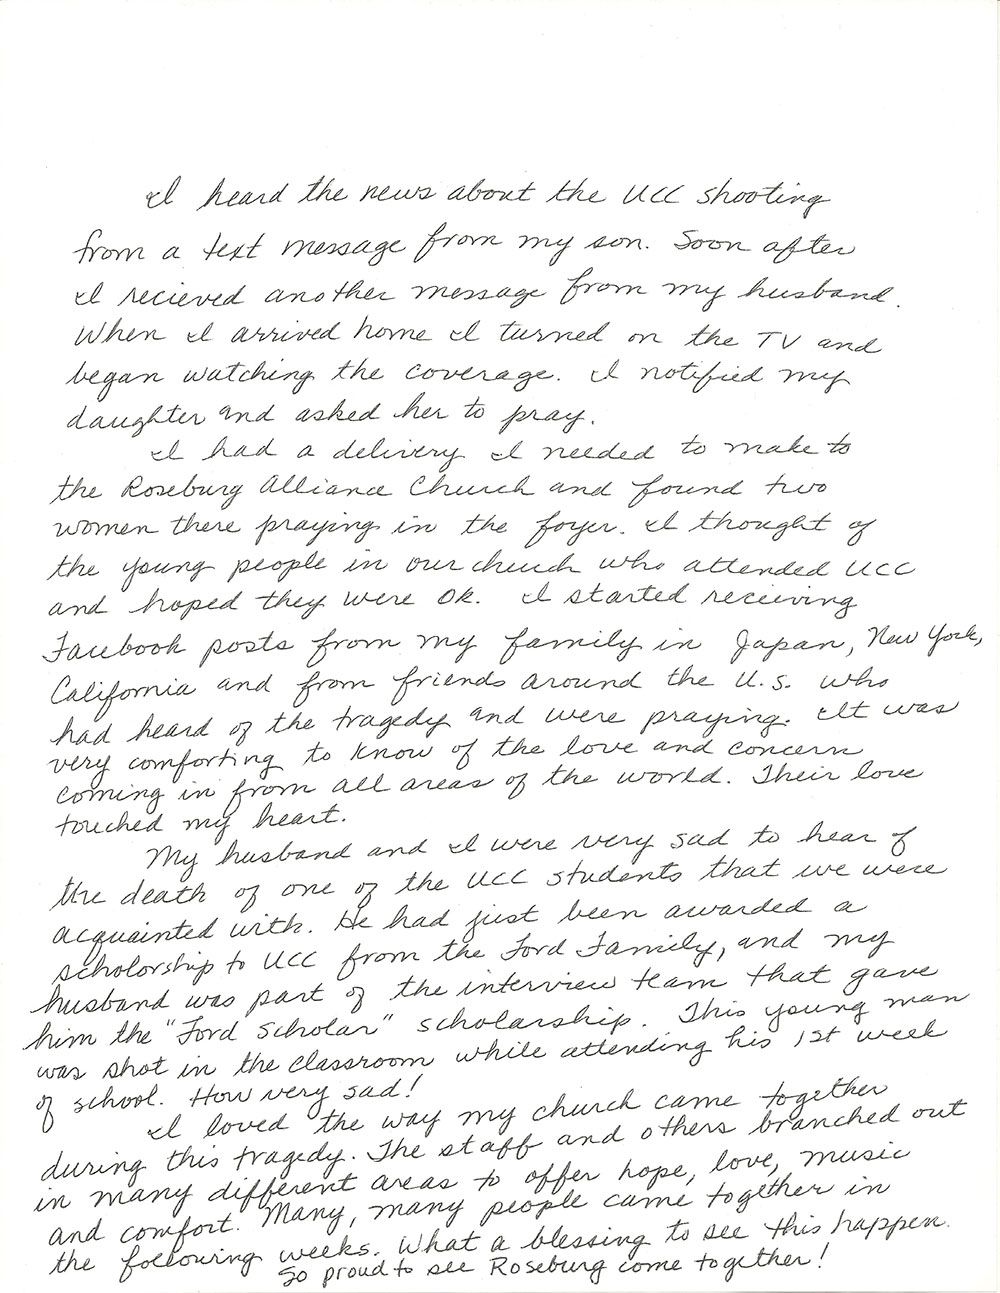 I heard the news about the UCC shooting
from a text message from my son. Soon after
I recieved another message from my husband.
When I arrived home I turned on the TV and
began watching the coverage. I notified my
daughter and asked her to pray.
I had a delivery I needed to make to
the Roseburg Alliance Church and found two
women there praying in the foyer. I thought of
the young people in our church who attended UCC
and hoped they were OK. I started receiving
Facebook posts from my family in Japan, New York,
California and from friends around the U.S. who
had heard of the tragedy and were praying. It was
very comforting to know of the love and concern
coming in from all areas of the world. Their love
touched my heart.
My husband and I were very sad to hear of
the death of one of the UCC students that we were
acquainted with. He had just been awarded a
scholorship to UCC from the Ford Family, and my
husband was part of the interview team that gave
him the "Ford Scholar" scholarship. This young man
was shot in the classroom while attending his 1st week
of school. How very sad!
I loved the way my church came together
during this tragedy. The staff and others branched out
in many different areas to offer hope, love, music
and comfort. Many, many people came together in
the following weeks. What a blessing to see this happen.
So proud to see Roseburg come together!